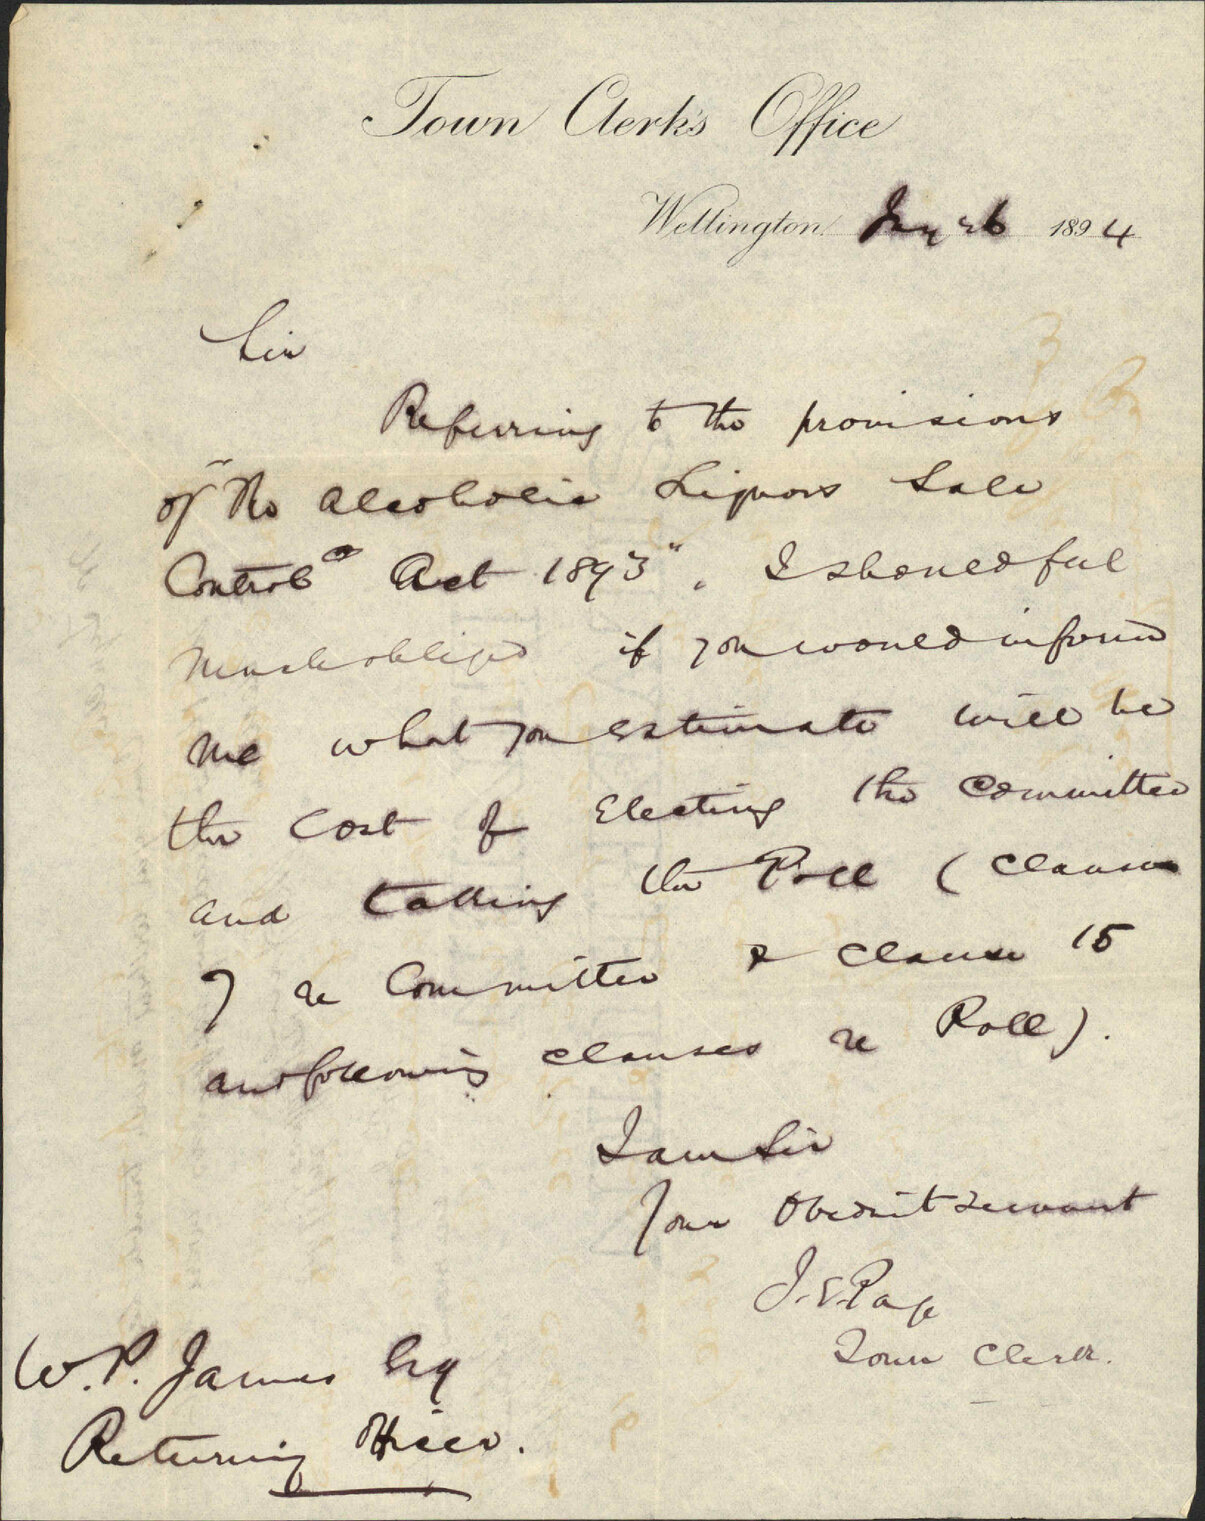 Town Clerk's Office
Wellington Jany 26 1894
Sir
Referring to the provisions
of "The Alcoholic Liquors Sale
Control Act 1893", I should feel
much obliged if you would inform
me what you estimate will be
the cost of Electing the Committee
and taking the Poll (Clause
7 re Committee & Clause 15
and following clauses re Poll).
I am Sir
Your Obedient servant
J.E. Page
Town Clerk.
W.P. James Esq
Returning Officer.